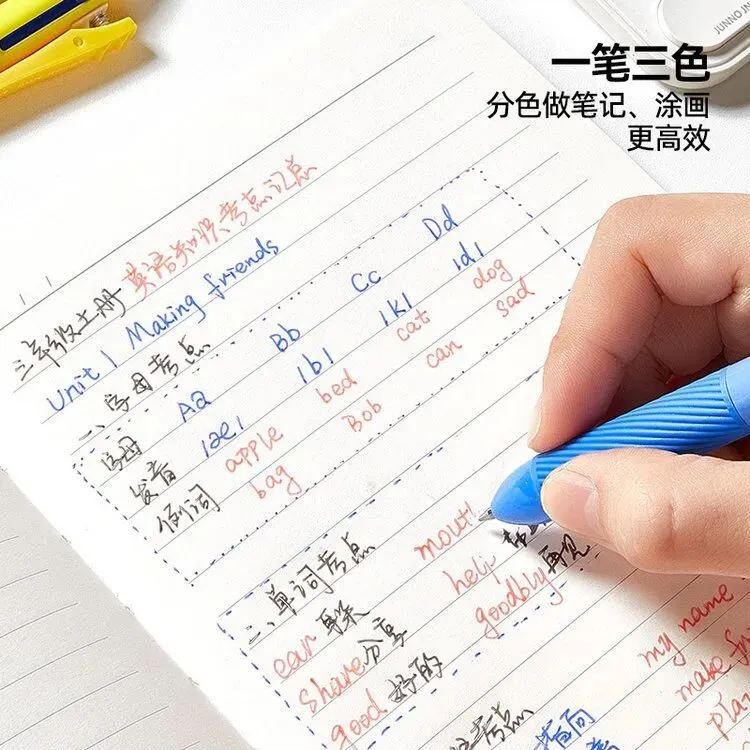 JUNNO JN
一笔三色
分色做笔记、涂画
更高效
三年级上册 英语知识考点汇总
Unit 1 Making friends
一、字母考点
字母 Aa Bb Cc Dd
发音 /æ/ /b/ /k/ /d/
例词 apple bed cat dog
bag Bob can sad
二、单词考点
ear 耳朵 mout
share 分享 help
good 好的 goodby 再见
my name
make fri
pla
考点